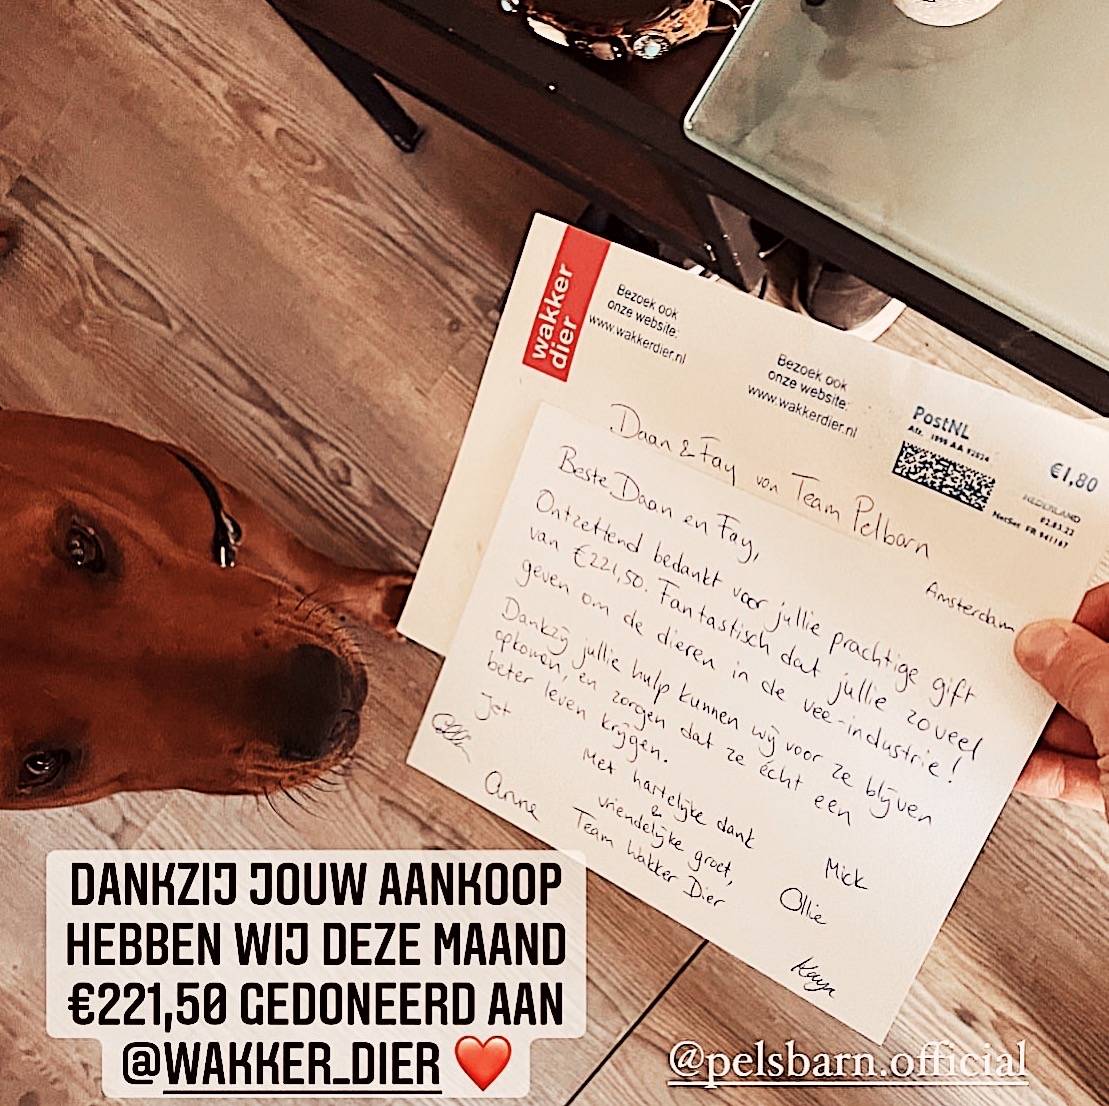 wakker
dier
Bezoek ook
onze website:
www.wakkerdier.nl
Bezoek ook
onze website:
www.wakkerdier.nl
PostNL
€1,80
NEDERLAND
02.03.23
Daan & Fay von Team Pelbarn
Amsterdam
Beste Daan en Fay,
Ontzettend bedankt voor jullie prachtige gift
van €221,50. Fantastisch dat jullie zoveel
geven om de dieren in de vee-industrie!
Dankzij jullie hulp kunnen wij voor ze blijven
opkomen, en zorgen dat ze écht een
beter leven krijgen.
Met hartelijke dank
&
vriendelijke groet,
Team Wakker Dier
Jet
Anne
Mick
Ollie
DANKZIJ JOUW AANKOOP
HEBBEN WIJ DEZE MAAND
€221,50 GEDONEERD AAN
@WAKKER_DIER ❤️
@pelsbarn.official